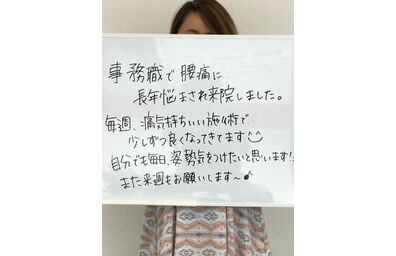 事務職で腰痛に
長年悩まされ来院しました。
毎週、痛気持ちいい施術で、
少しずつ良くなってきてます☺
自分でも毎日、姿勢気をつけたいと思います!
また来週もお願いします〜♪